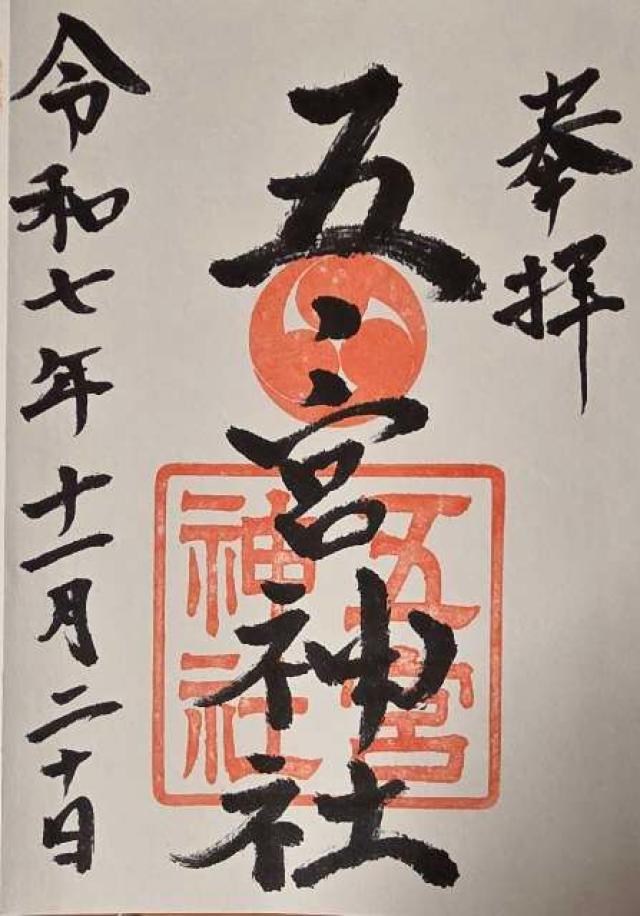 奉拝
五宮神社
五宮
神社
令和七年十一月二十日